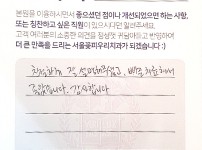 본원을 이용하시면서 좋으셨던 점이나 개선되었으면 하는 사항,
또는 칭찬하고 싶은 직원이 있으시다면 알려주세요.
고객 여러분의 소중한 의견을 정성껏 귀담아듣고 반영하여
더 큰 만족을 드리는 서울꽃피우리치과가 되겠습니다 :)
친절하게 잘 설명해주셨고, 빠른 처치해주셔서
좋았습니다. 감사합니다